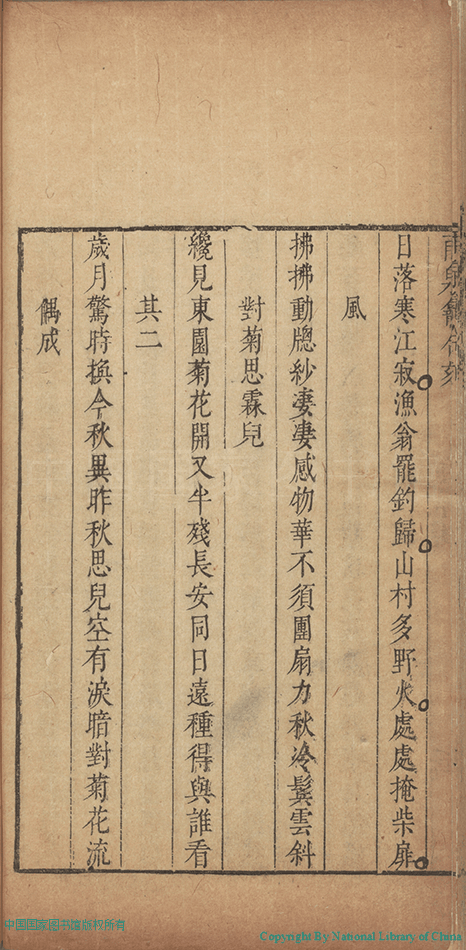 日落寒江寂漁翁罷釣歸山村多野火處處掩柴扉
風
拂拂動牕紗凄凄感物華不須團扇力秋冷鬓雲斜
對菊思霖兒
纔見東園菊花開又半殘長安同日遠種得與誰看
其二
歲月驚時換今秋異昨秋思兒空有淚暗對菊花流
偶成
中国国家图书馆版权所有
Copyright By National Library of China